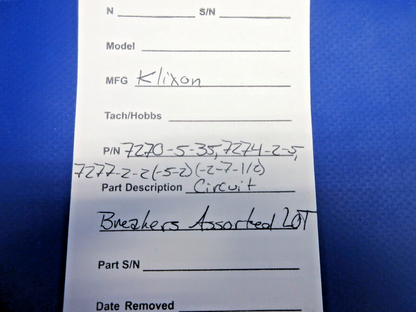 N ____ S/N ____
Model ____
MFG Klixon
Tach/Hobbs ____
P/N 7270-5-35, 7274-2-5,
7277-2-2(-5-2)(-2-7-1/2)
Part Description Circuit
Breakers Assorted LOT
Part S/N ____
Date Removed ____